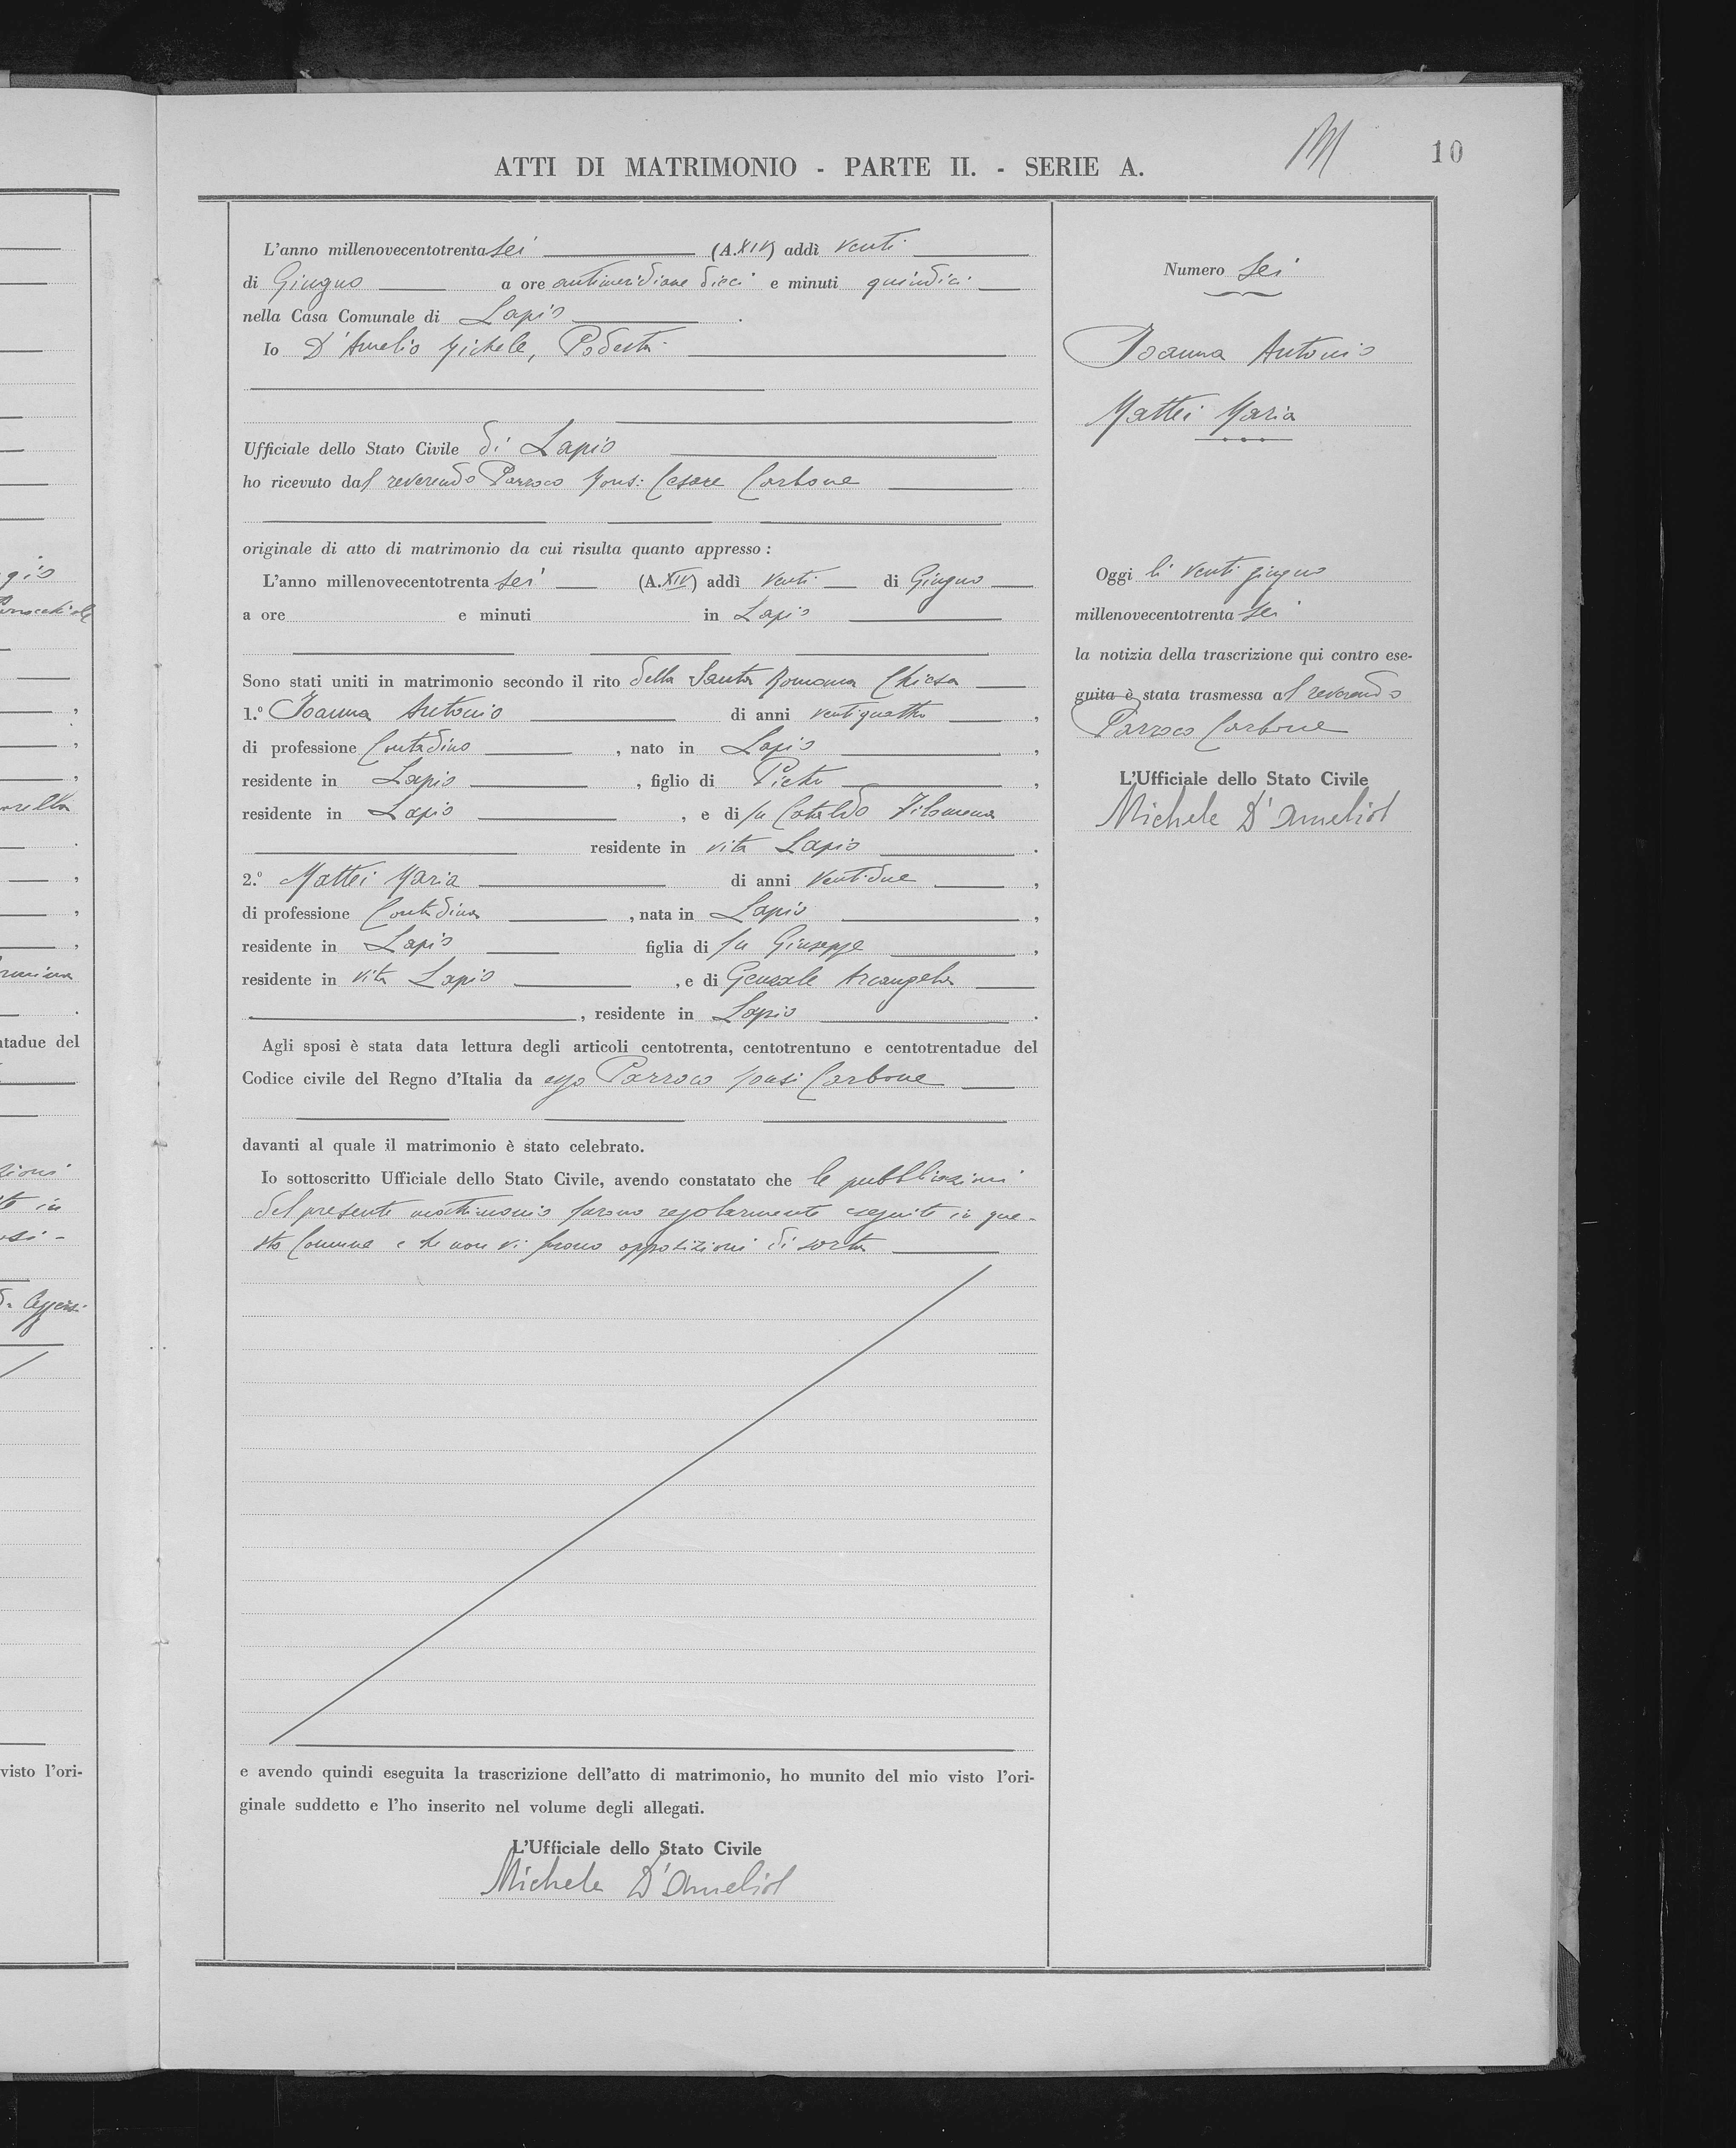 ATTI DI MATRIMONIO - PARTE II. - SERIE A.
10
L'anno millenovecentotrenta sei (A. XIV) addì venti
di Giugno a ore antimeridiane dieci e minuti quindici
nella Casa Comunale di Lapio .
Io D'Amelio Michele, Podestà
Ufficiale dello Stato Civile di Lapio
ho ricevuto dal reverendo Parroco Mons: Cesare Carbone
originale di atto di matrimonio da cui risulta quanto appresso :
L'anno millenovecentotrenta sei (A. XIV) addì venti di Giugno
a ore e minuti in Lapio
Sono stati uniti in matrimonio secondo il rito della Santa Romana Chiesa
1.° Ioanna Antonio di anni ventiquattro ,
di professione Contadino , nato in Lapio ,
residente in Lapio , figlio di Pietro ,
residente in Lapio , e di fu Cataldo Filomena
residente in vita Lapio .
2.° Mattei Maria di anni ventidue ,
di professione Contadina , nata in Lapio ,
residente in Lapio figlia di fu Giuseppe ,
residente in vita Lapio , e di Genzale Arcangela
, residente in Lapio .
Agli sposi è stata data lettura degli articoli centotrenta, centotrentuno e centotrentadue del
Codice civile del Regno d'Italia da esso Parroco Carbone
davanti al quale il matrimonio è stato celebrato.
Io sottoscritto Ufficiale dello Stato Civile, avendo constatato che le pubblicazioni
del presente matrimonio furono regolarmente eseguite in que-
sto Comune e che non vi furono opposizioni di sorta
e avendo quindi eseguita la trascrizione dell'atto di matrimonio, ho munito del mio visto l'ori-
ginale suddetto e l'ho inserito nel volume degli allegati.
L'Ufficiale dello Stato Civile
Michele D'Amelio
Numero Sei
Ioanna Antonio
Mattei Maria
Oggi li venti giugno
millenovecentotrenta sei
la notizia della trascrizione qui contro ese-
guita è stata trasmessa al reverendo
Parroco Carbone
L'Ufficiale dello Stato Civile
Michele D'Amelio
tadue del
visto l'ori-